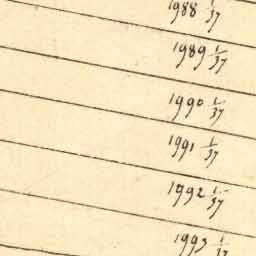 1988 1/37
1989 1/37
1990 1/37
1991 1/37
1992 1/37
1993 1/37